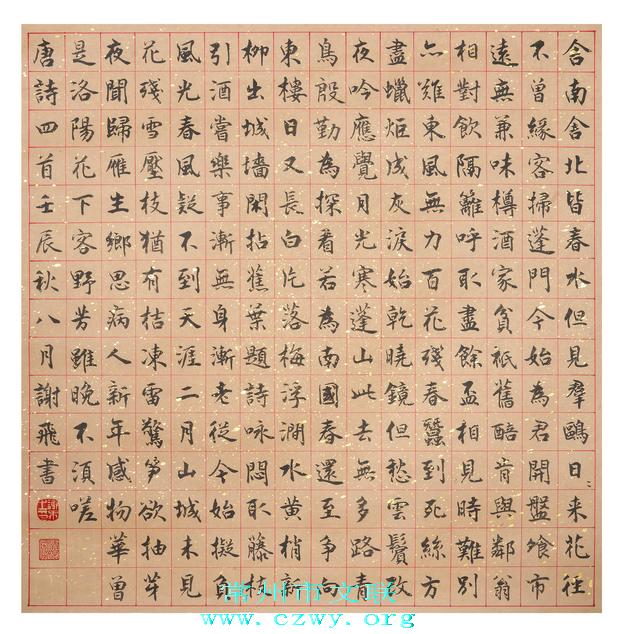 舍南舍北皆春水但見羣鷗日〻来花徑
不曾緣客掃蓬門今始為君開盤飧市
遠無兼味樽酒家貧衹舊醅肯與鄰翁
相對飲隔籬呼取盡餘盃相見時難別
亦難東風無力百花殘春蠶到死絲方
盡蠟炬成灰淚始乾曉鏡但愁雲鬢改
夜吟應覺月光寒蓬山此去無多路青
鳥殷勤為探看若為南國春還至爭向
東樓日又長白片落梅浮澗水黃梢新
柳出城墻閑拈蕉葉題詩咏悶取藤枝
引酒嘗樂事漸無身漸老從今始擬負
風光春風疑不到天涯二月山城未見
花殘雪壓枝猶有桔凍雷驚笋欲抽芽
夜聞歸雁生鄉思病人新年感物華曾
是洛陽花下客野芳雖晚不須嗟
唐詩四首壬辰秋八月謝飛書
常州市文联
www.czwy.org